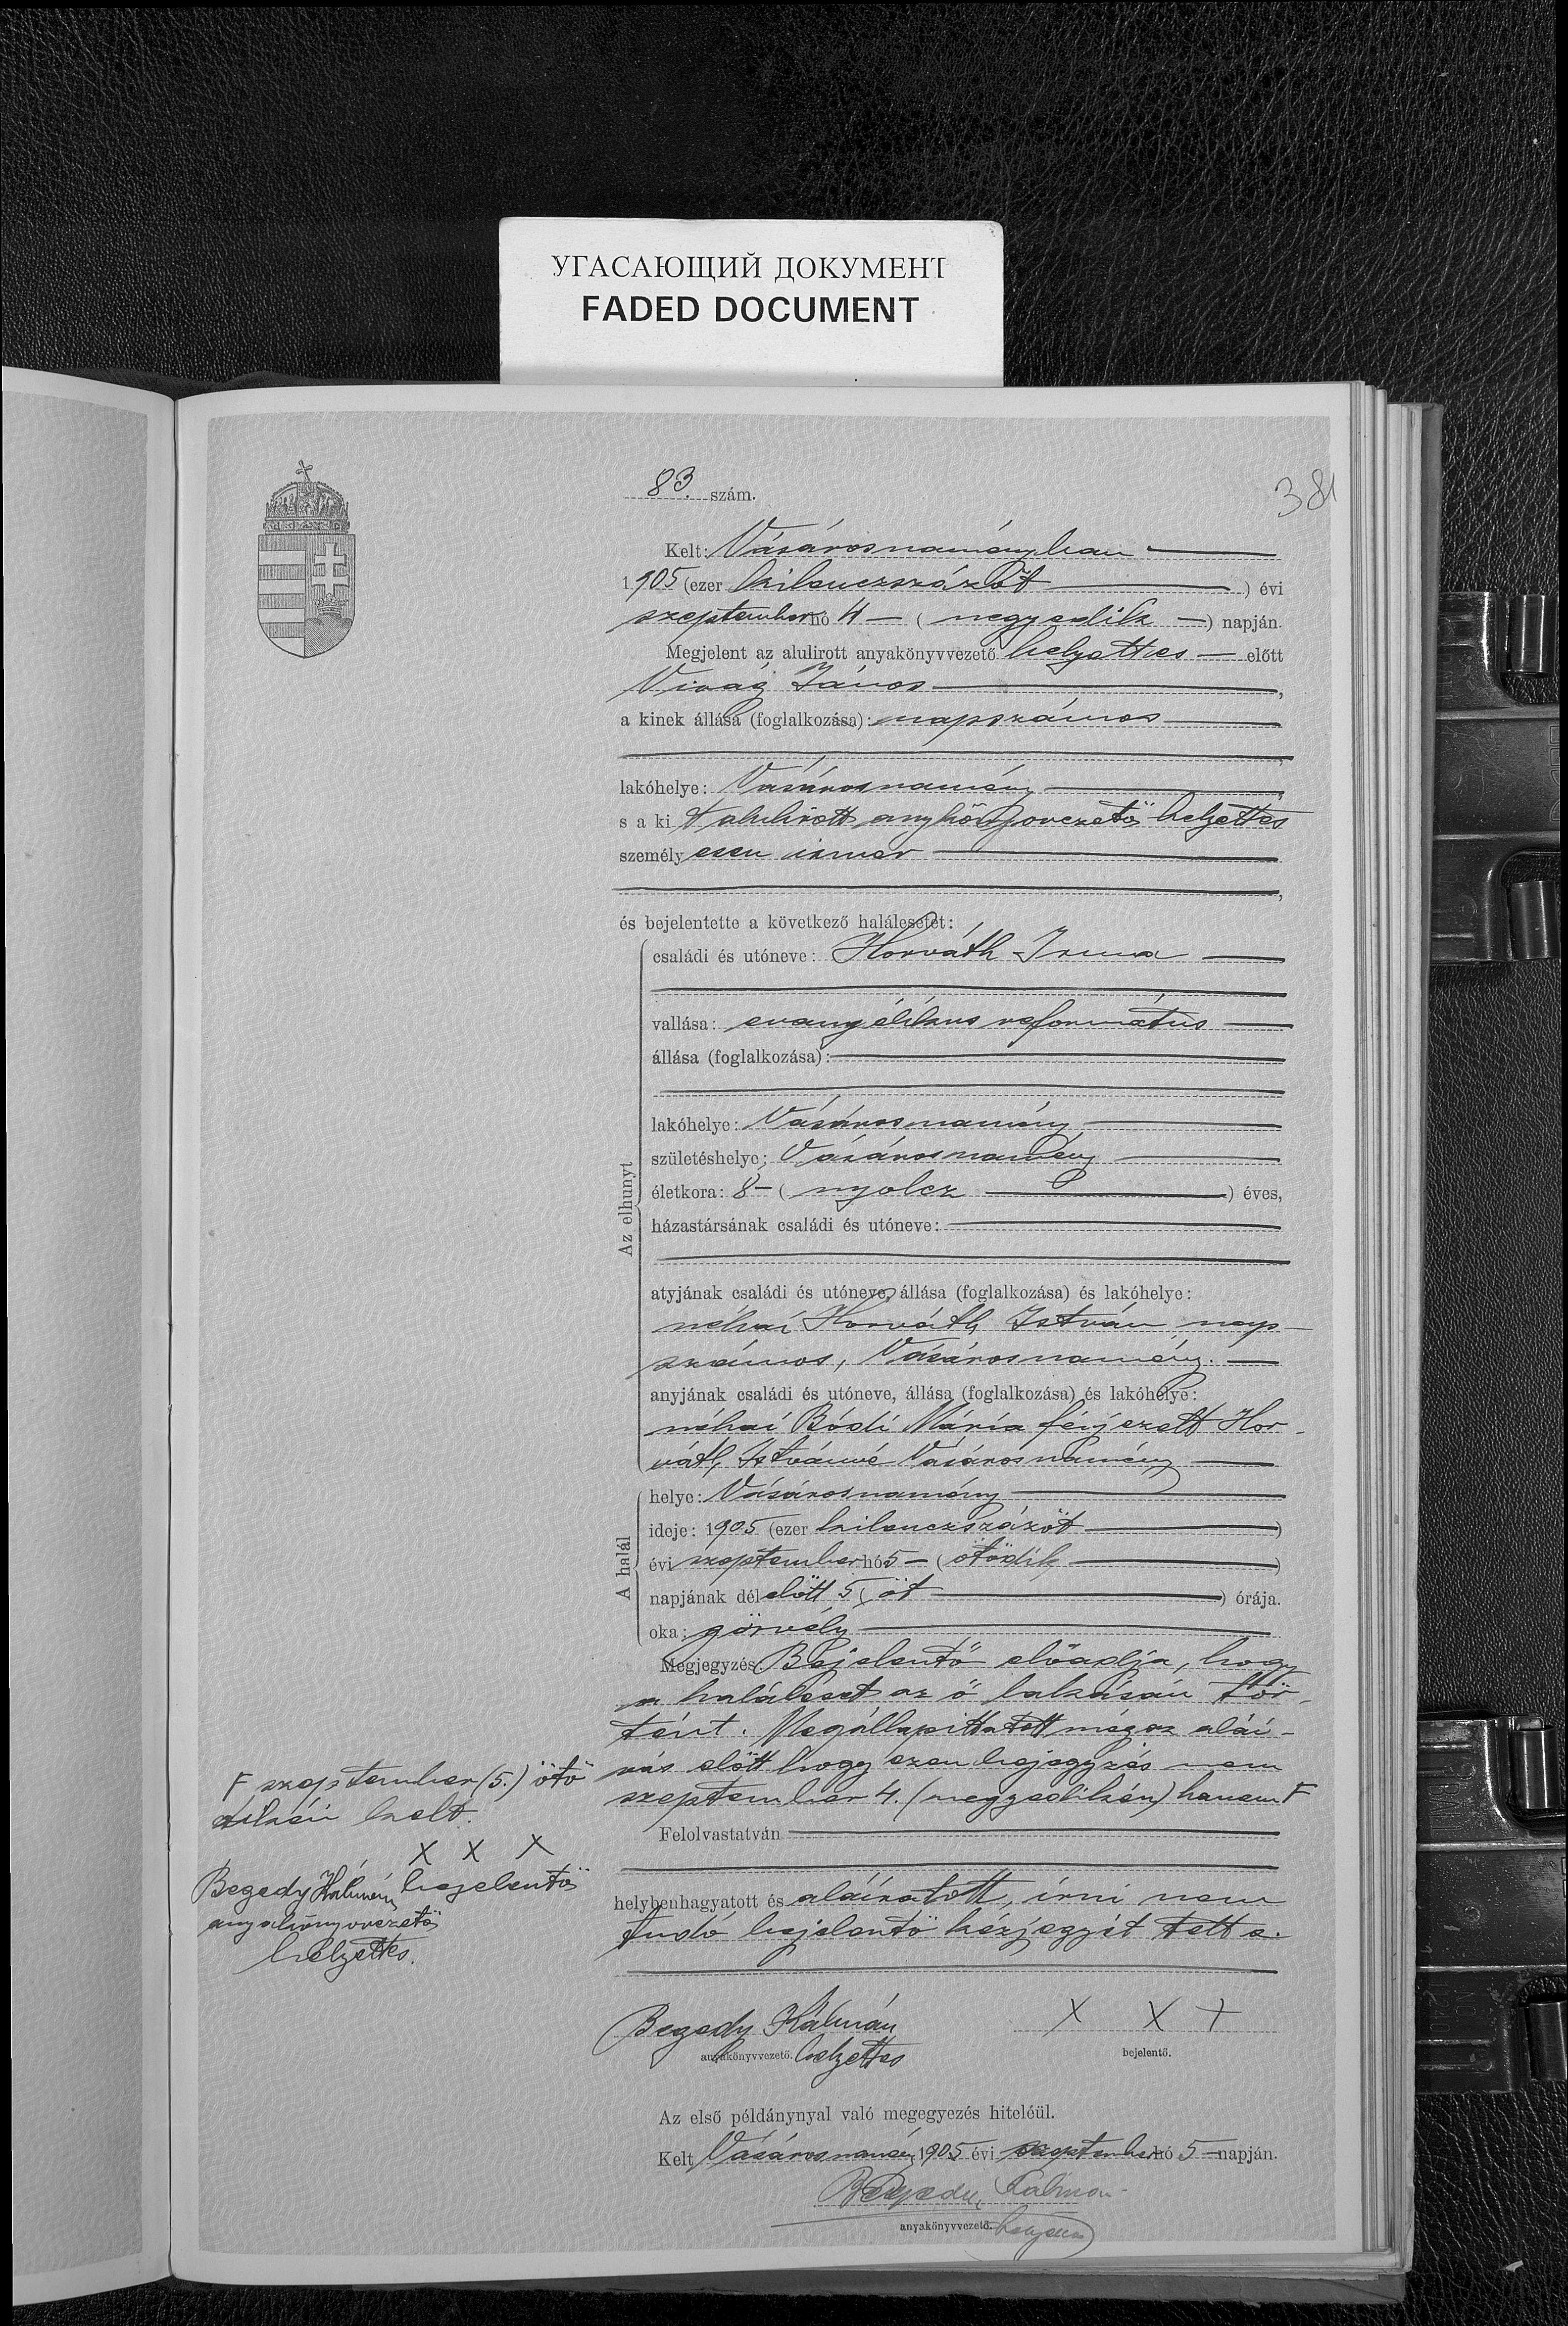 УГАСАЮЩИЙ ДОКУМЕНТ
FADED DOCUMENT
83. szám.
381
Kelt: Vásárosnaményban
1905 (ezer kilenczszázöt) évi
szeptember hó 4 – (negyedik –) napján.
Megjelent az alulirott anyakönyvvezető helyettes – előtt
Virág János,
a kinek állása (foglalkozása): napszámos
lakóhelye: Vásárosnamény,
s a ki t alulirott anykönyvvezető helyettes
személyesen ismer,
és bejelentette a következő halálesetet:
Az elhunyt
családi és utóneve: Horváth Irma
vallása: evangélikus református
állása (foglalkozása):
lakóhelye: Vásárosnamény
születéshelye: Vásárosnamény
életkora: 8 – (nyolcz) éves,
házastársának családi és utóneve:
atyjának családi és utóneve, állása (foglalkozása) és lakóhelye:
néhai Horváth István nap-
számos, Vásárosnamény.
anyjának családi és utóneve, állása (foglalkozása) és lakóhelye:
néhai Bódi Mária férjezett Hor-
váth Istvánné Vásárosnamény
A halál
helye: Vásárosnamény
ideje: 1905 (ezer kilenczszázöt)
évi szeptember hó 5 – (ötödik)
napjának délelőtt 5 (öt) órája.
oka: görvély
Megjegyzés: Bejelentő előadja, hogy
a haláleset az ő lakásán tör-
tént. Megállapittatott még az aláí-
rás előtt hogy ezen bejegyzés nem
szeptember 4. (negyedikén) hanem F
F szeptember (5.) ötö
dikén kelt.
X X X
Begedy Kálmán bejelentő
anyakönyvvezető
helyettes.
Felolvastatván
helybenhagyatott és aláíratott, írni nem
tudó bejelentő kézjegyét tette.
Begedy Kálmán X X X
anyakönyvvezető. helyettes bejelentő.
Az első példánynyal való megegyezés hiteléül.
Kelt Vásárosnamény 1905 évi szeptember hó 5 – napján.
Begedy Kálmán
anyakönyvvezető. helyettes